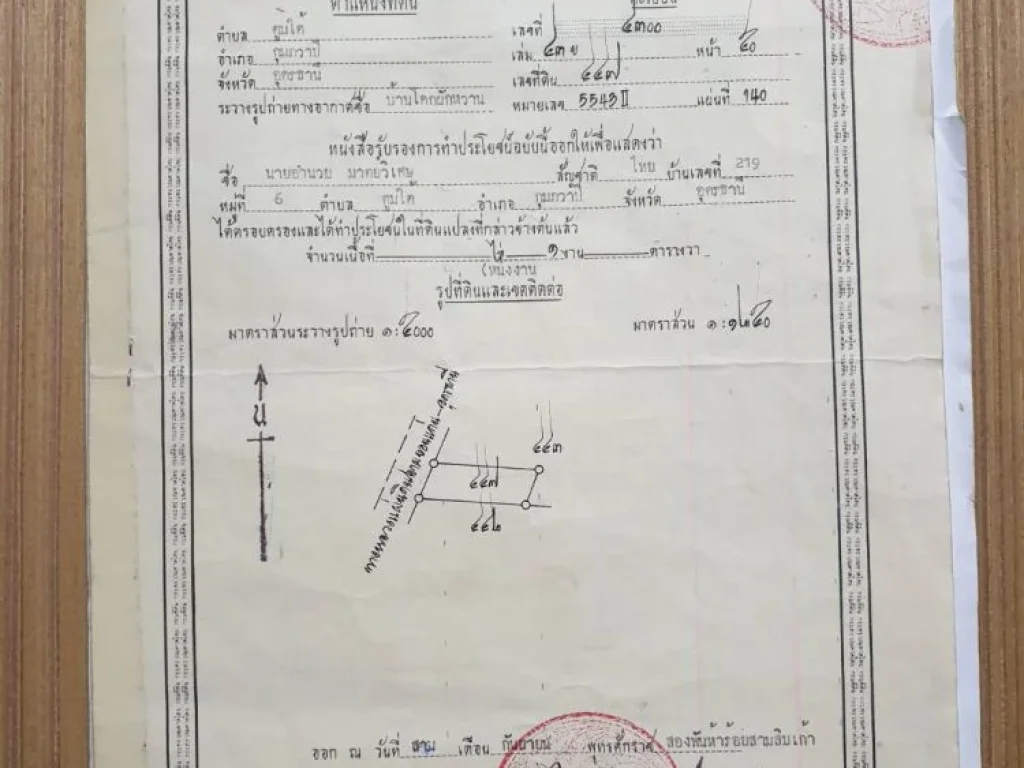 ตำแหน่งที่ดิน
ตำบล ตูมใต้ เลขที่ ๔๓๐๐
อำเภอ กุมภวาปี เล่ม ๔๓ ข หน้า ๕๐
จังหวัด อุดรธานี เลขที่ดิน ๔๔๗
ระวางรูปถ่ายทางอากาศชื่อ บ้านโคกผักหวาน หมายเลข 5543 II แผ่นที่ 140
หนังสือรับรองการทำประโยชน์ฉบับนี้ออกให้เพื่อแสดงว่า
ชื่อ นายอำนวย มาตย์วิเศษ สัญชาติ ไทย บ้านเลขที่ 219
หมู่ที่ 6 ตำบล ตูมใต้ อำเภอ กุมภวาปี จังหวัด อุดรธานี
ได้ครอบครองและได้ทำประโยชน์ในที่ดินแปลงที่กล่าวข้างต้นแล้ว
จำนวนเนื้อที่ ไร่ ๑ งาน ตารางวา
(หนึ่งงาน
รูปที่ดินและเขตติดต่อ
มาตราส่วนระวางรูปถ่าย ๑:๕๐๐๐ มาตราส่วน ๑:๑๒๕๐
น
๔๔๓
๔๔๗
๔๔๒
ออก ณ วันที่ สาม เดือน กันยายน พุทธศักราช สองพันห้าร้อยสามสิบเก้า